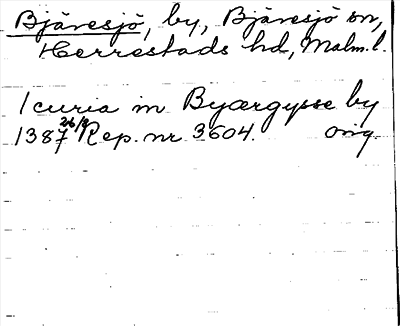 Bjäresjö, by, Bjäresjö sn,
Herrestads hd, Malm. l.
1 curia in Byærgysse by
1387 26/3 Rep. nr 3604. orig.